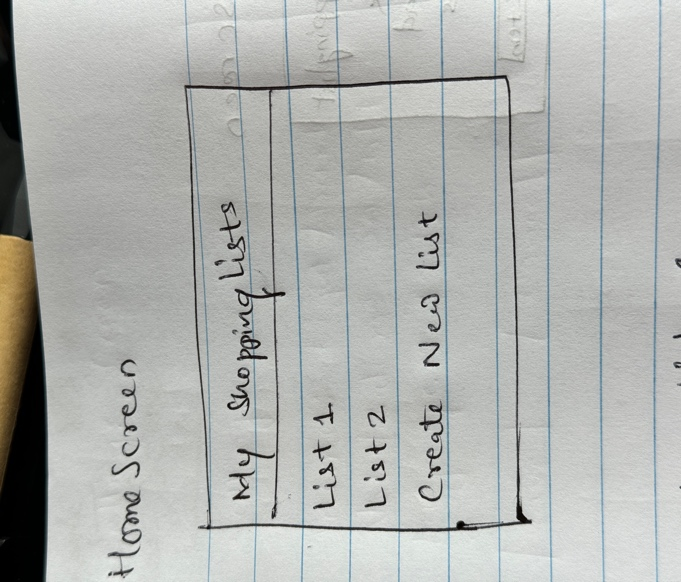 Home Screen
My Shopping Lists
List 1
List 2
Create New List